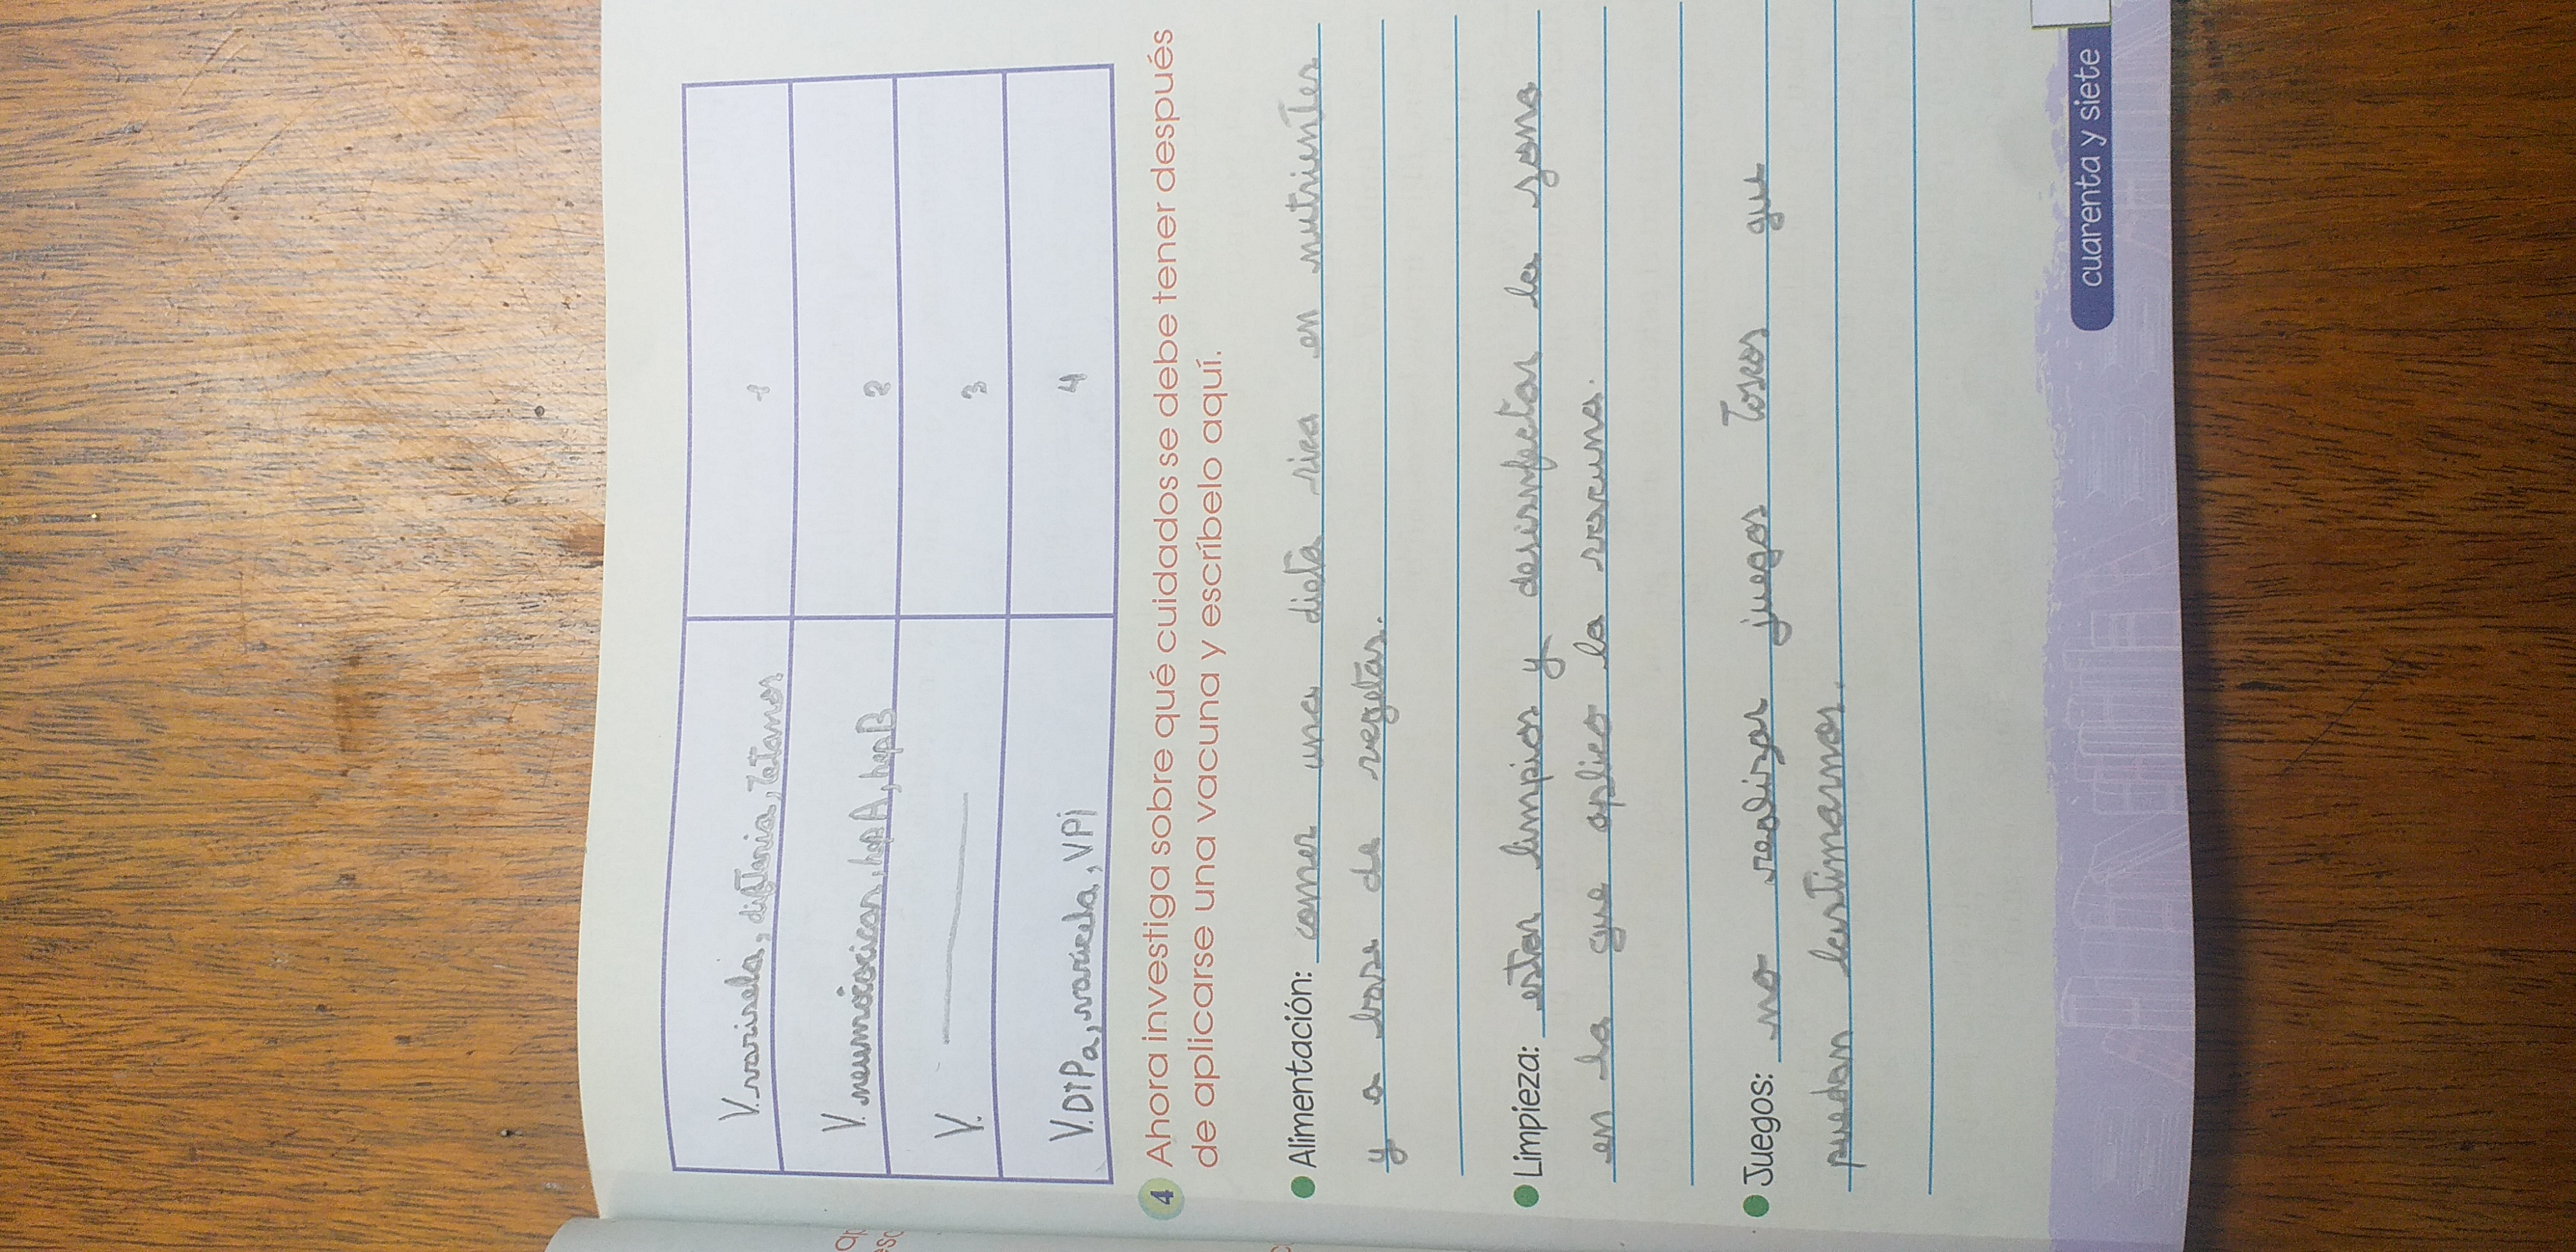 V. varisela, difteria, Tetanos 1
V. neumocócicas, hep A, hep B 2
V. 3
V. DTPa, varicela, VPi 4
4 Ahora investiga sobre qué cuidados se debe tener después
de aplicarse una vacuna y escríbelo aquí.
Alimentación: comer una dieta rica en nutrientes
y a base de vegetas.
Limpieza: estar limpios y desisnfectar la zona
en la que aplico la vacuna.
Juegos: no realizar juegos toscos que
puedan lastimarnos.
cuarenta y siete